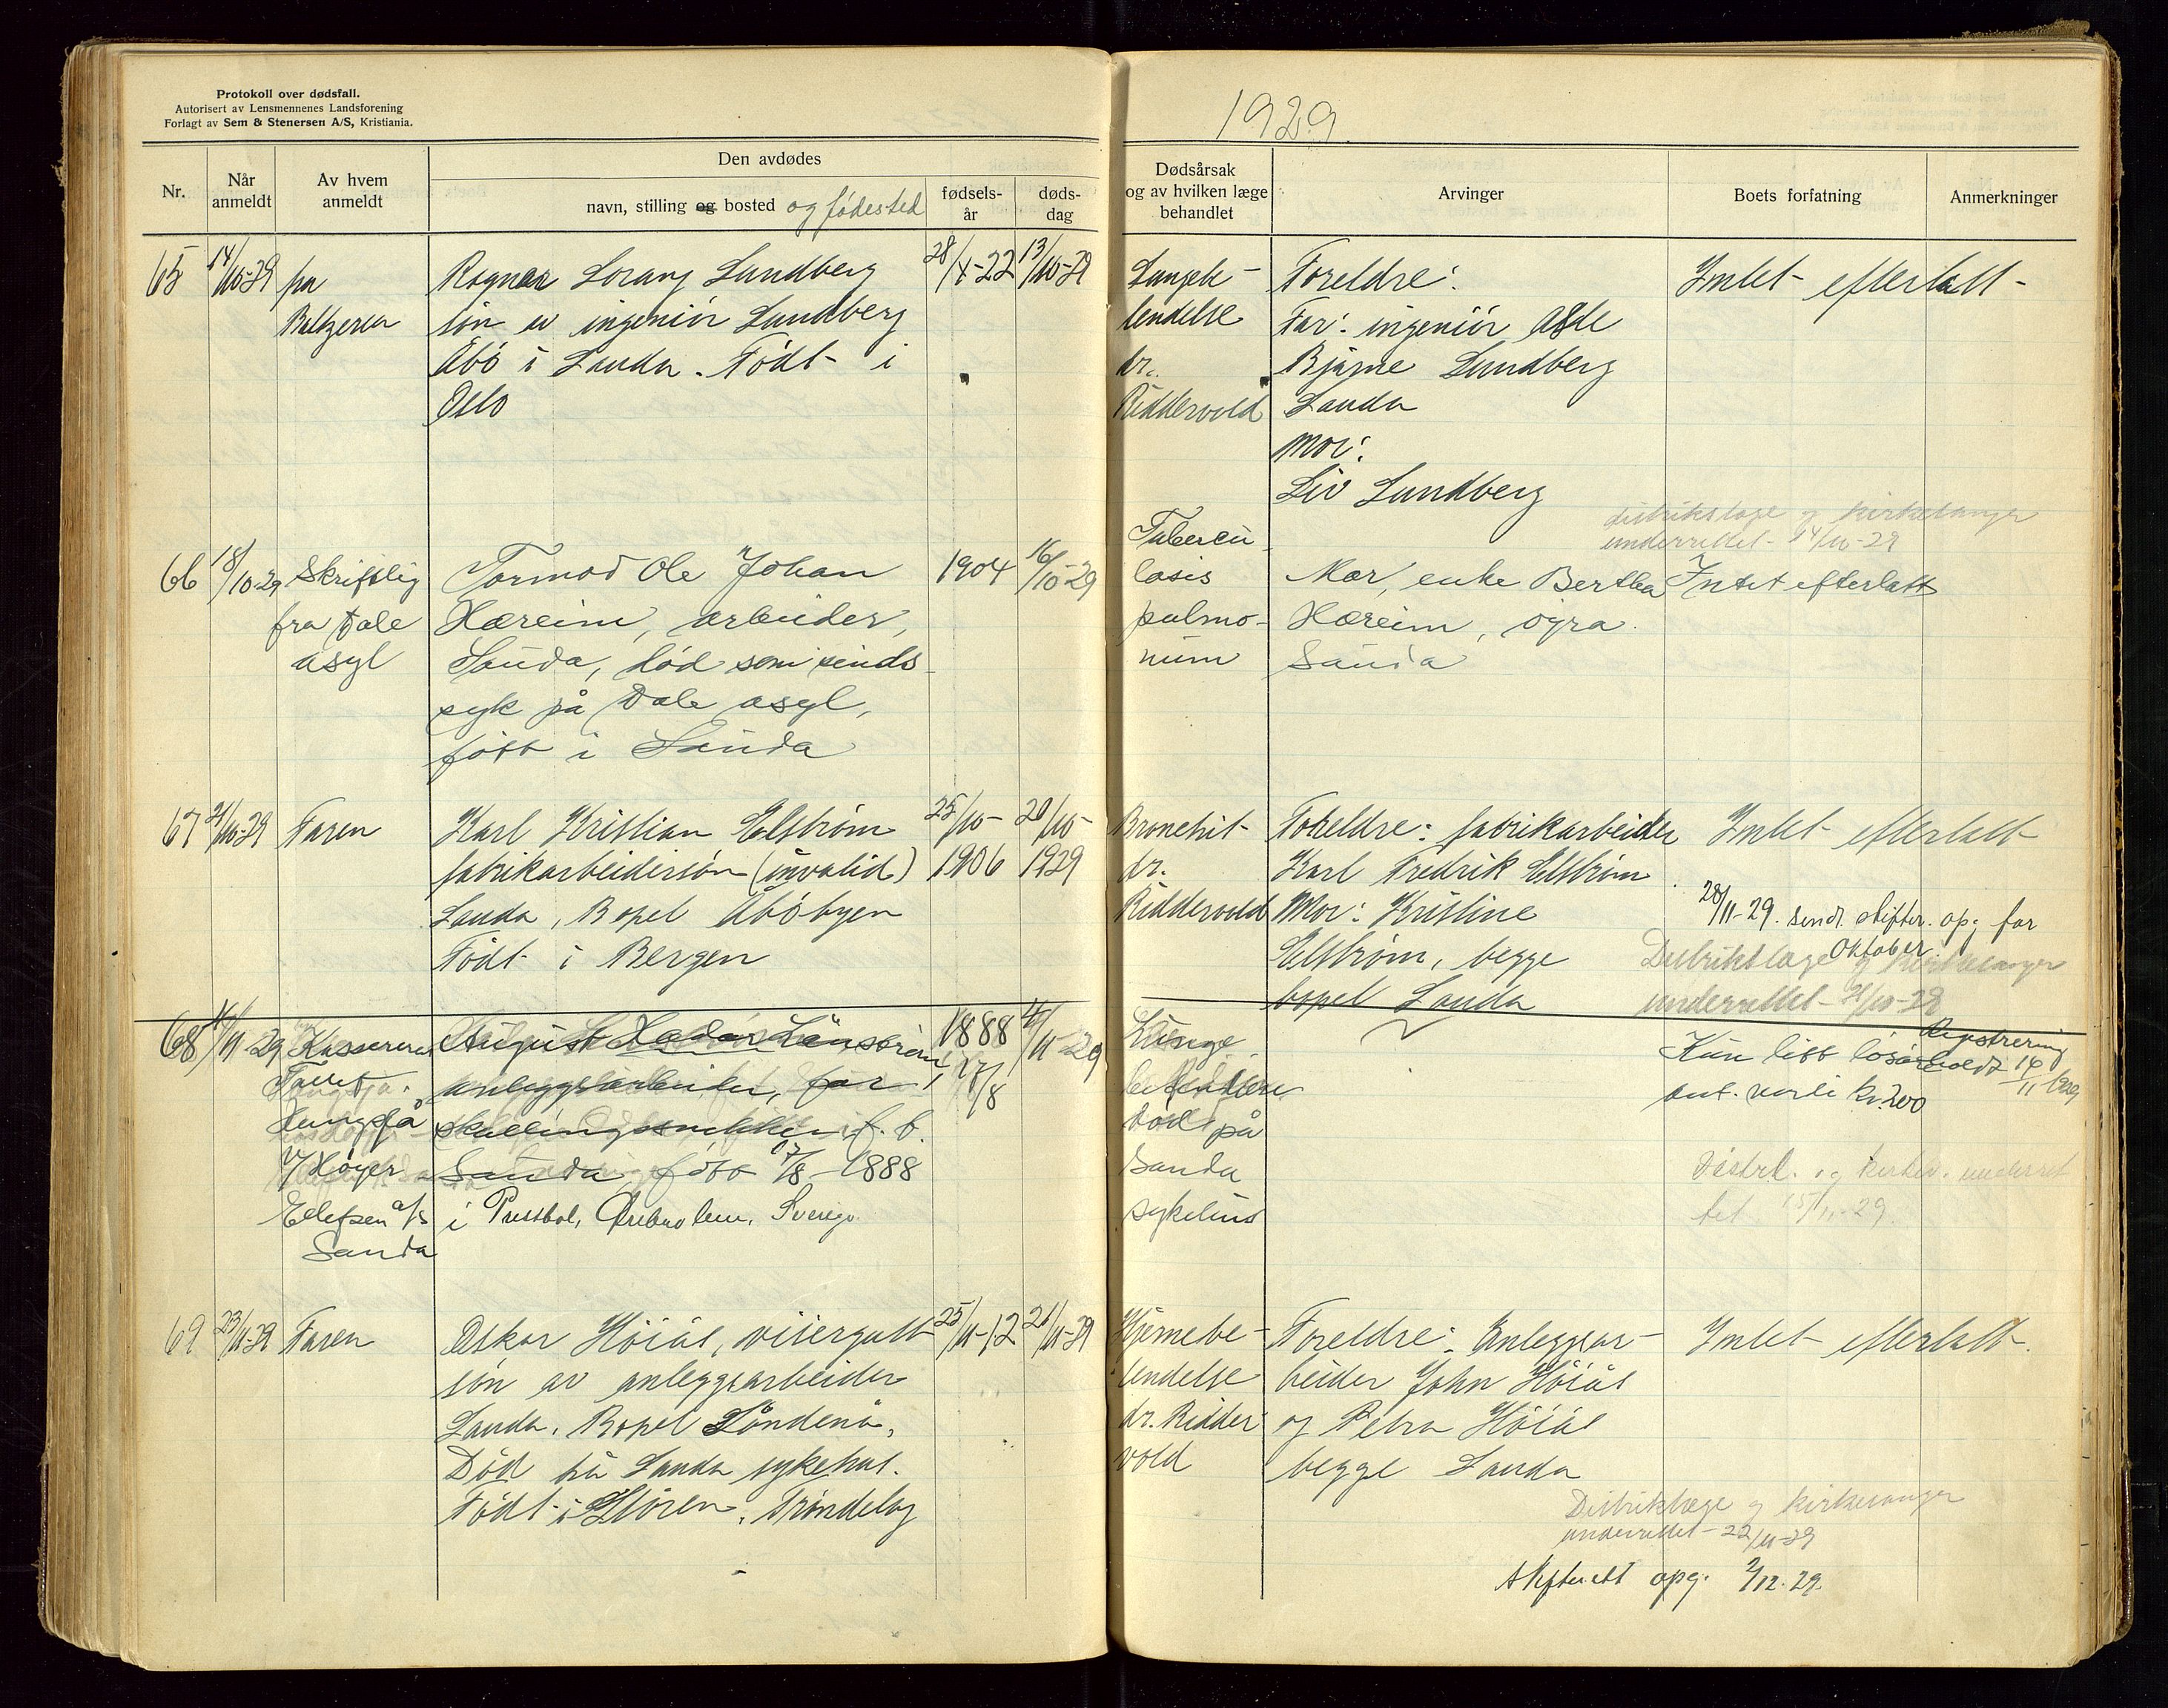 Protokoll over dødsfall.
Autorisert av Lensmennenes Landsforening
Forlagt av Sem & Stenersen A/S, Kristiania.
1929.
Nr.
Når anmeldt
Av hvem anmeldt
Den avdødes
navn, stilling og bosted og fødested
fødsels-år
døds-dag
Dødsårsak og av hvilken læge behandlet
Arvinger
Boets forfatning
Anmerkninger
65
14/10-29
fra
Ragnar Lorang Lundberg
søn av ingeniør Lundberg
Åbø i Sauda. Født i
Oslo
28/4-22
13/10-29
Lungebe-
tendelse
dr.
Riddervold
Foreldre:
Far: ingeniør
Bjarne Lundberg
Sauda
Mor:
Liv Lundberg
Intet efterlatt
distriktslæge og kirkesanger
underrettet 14/10-29
66
18/10-29
Skriftlig
fra Dale
asyl
Tormod Ole Johan
Hæreim, arbeider,
Sauda, død som sinds-
syk på Dale asyl,
født i Sauda
1904
16/10-29
Tubercu-
losis
pulmo-
num
Mor, enke Bertha
Hæreim, Øyra
Sauda
Intet efterlatt
67
21/10-29
Faren
Karl Kristian Elstrøm
fabrikarbeidersøn (invalid)
Sauda, Bopel Åbøbyen
Født i Bergen
25/10-
1906
20/10-
1929
Bronchit
dr.
Riddervold
Foreldre: fabrikarbeider
Karl Fredrik Elstrøm
Mor: Kristine
Elstrøm, begge
bopel Sauda
Intet efterlatt
28/11-29. send. skifter. opg for
Oktober.
Distriktslæge og kirkesanger
underrettet 21/10-29
68
11-29
Kassereren
Høyer
Ellefsen a/s
Sauda
August
anleggsarbeider, før
f. b.
Sauda, født 17/8-1888
i
Sverige
1888
17/8
11-29
Lunge
død på
Sauda
sykehus
Registrering
Kun litt løsøre
ant. verdi kr. 200
15/11-29.
69
23/11-29
Faren
Oskar Höiås, visergutt
søn av anleggsarbeider
Sauda. Bopel Søndenå,
Død på Sauda sykehus.
Født i Støren, Trøndelag
25/11-12
21/11-29
Hjernebe-
tendelse
dr. Ridder-
vold
Foreldre: Anleggsar-
beider John Höiås
og Petra Höiås
begge Sauda
Intet efterlatt.
Distriktslæge og kirkesanger
underrettet 22/11-29
Skifterett opg. 2/12.29.